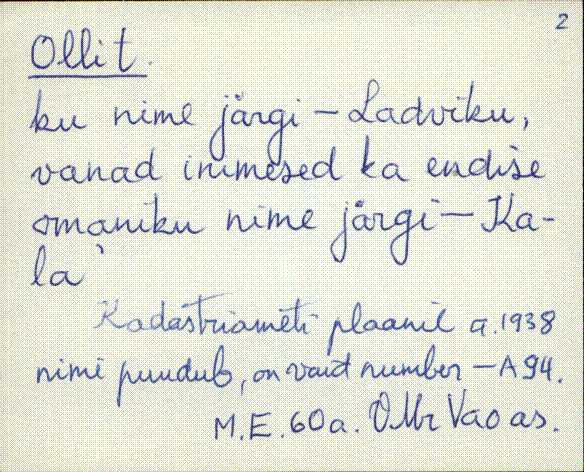 2
Ollit.
ku nime järgi – Ladviku,
vanad inimesed ka endise
omaniku nime järgi – Ka-
la
Kadastriameti plaanil a. 1938
nimi puudub, on vaid number – A 94.
M.E. 60a. Vao as.